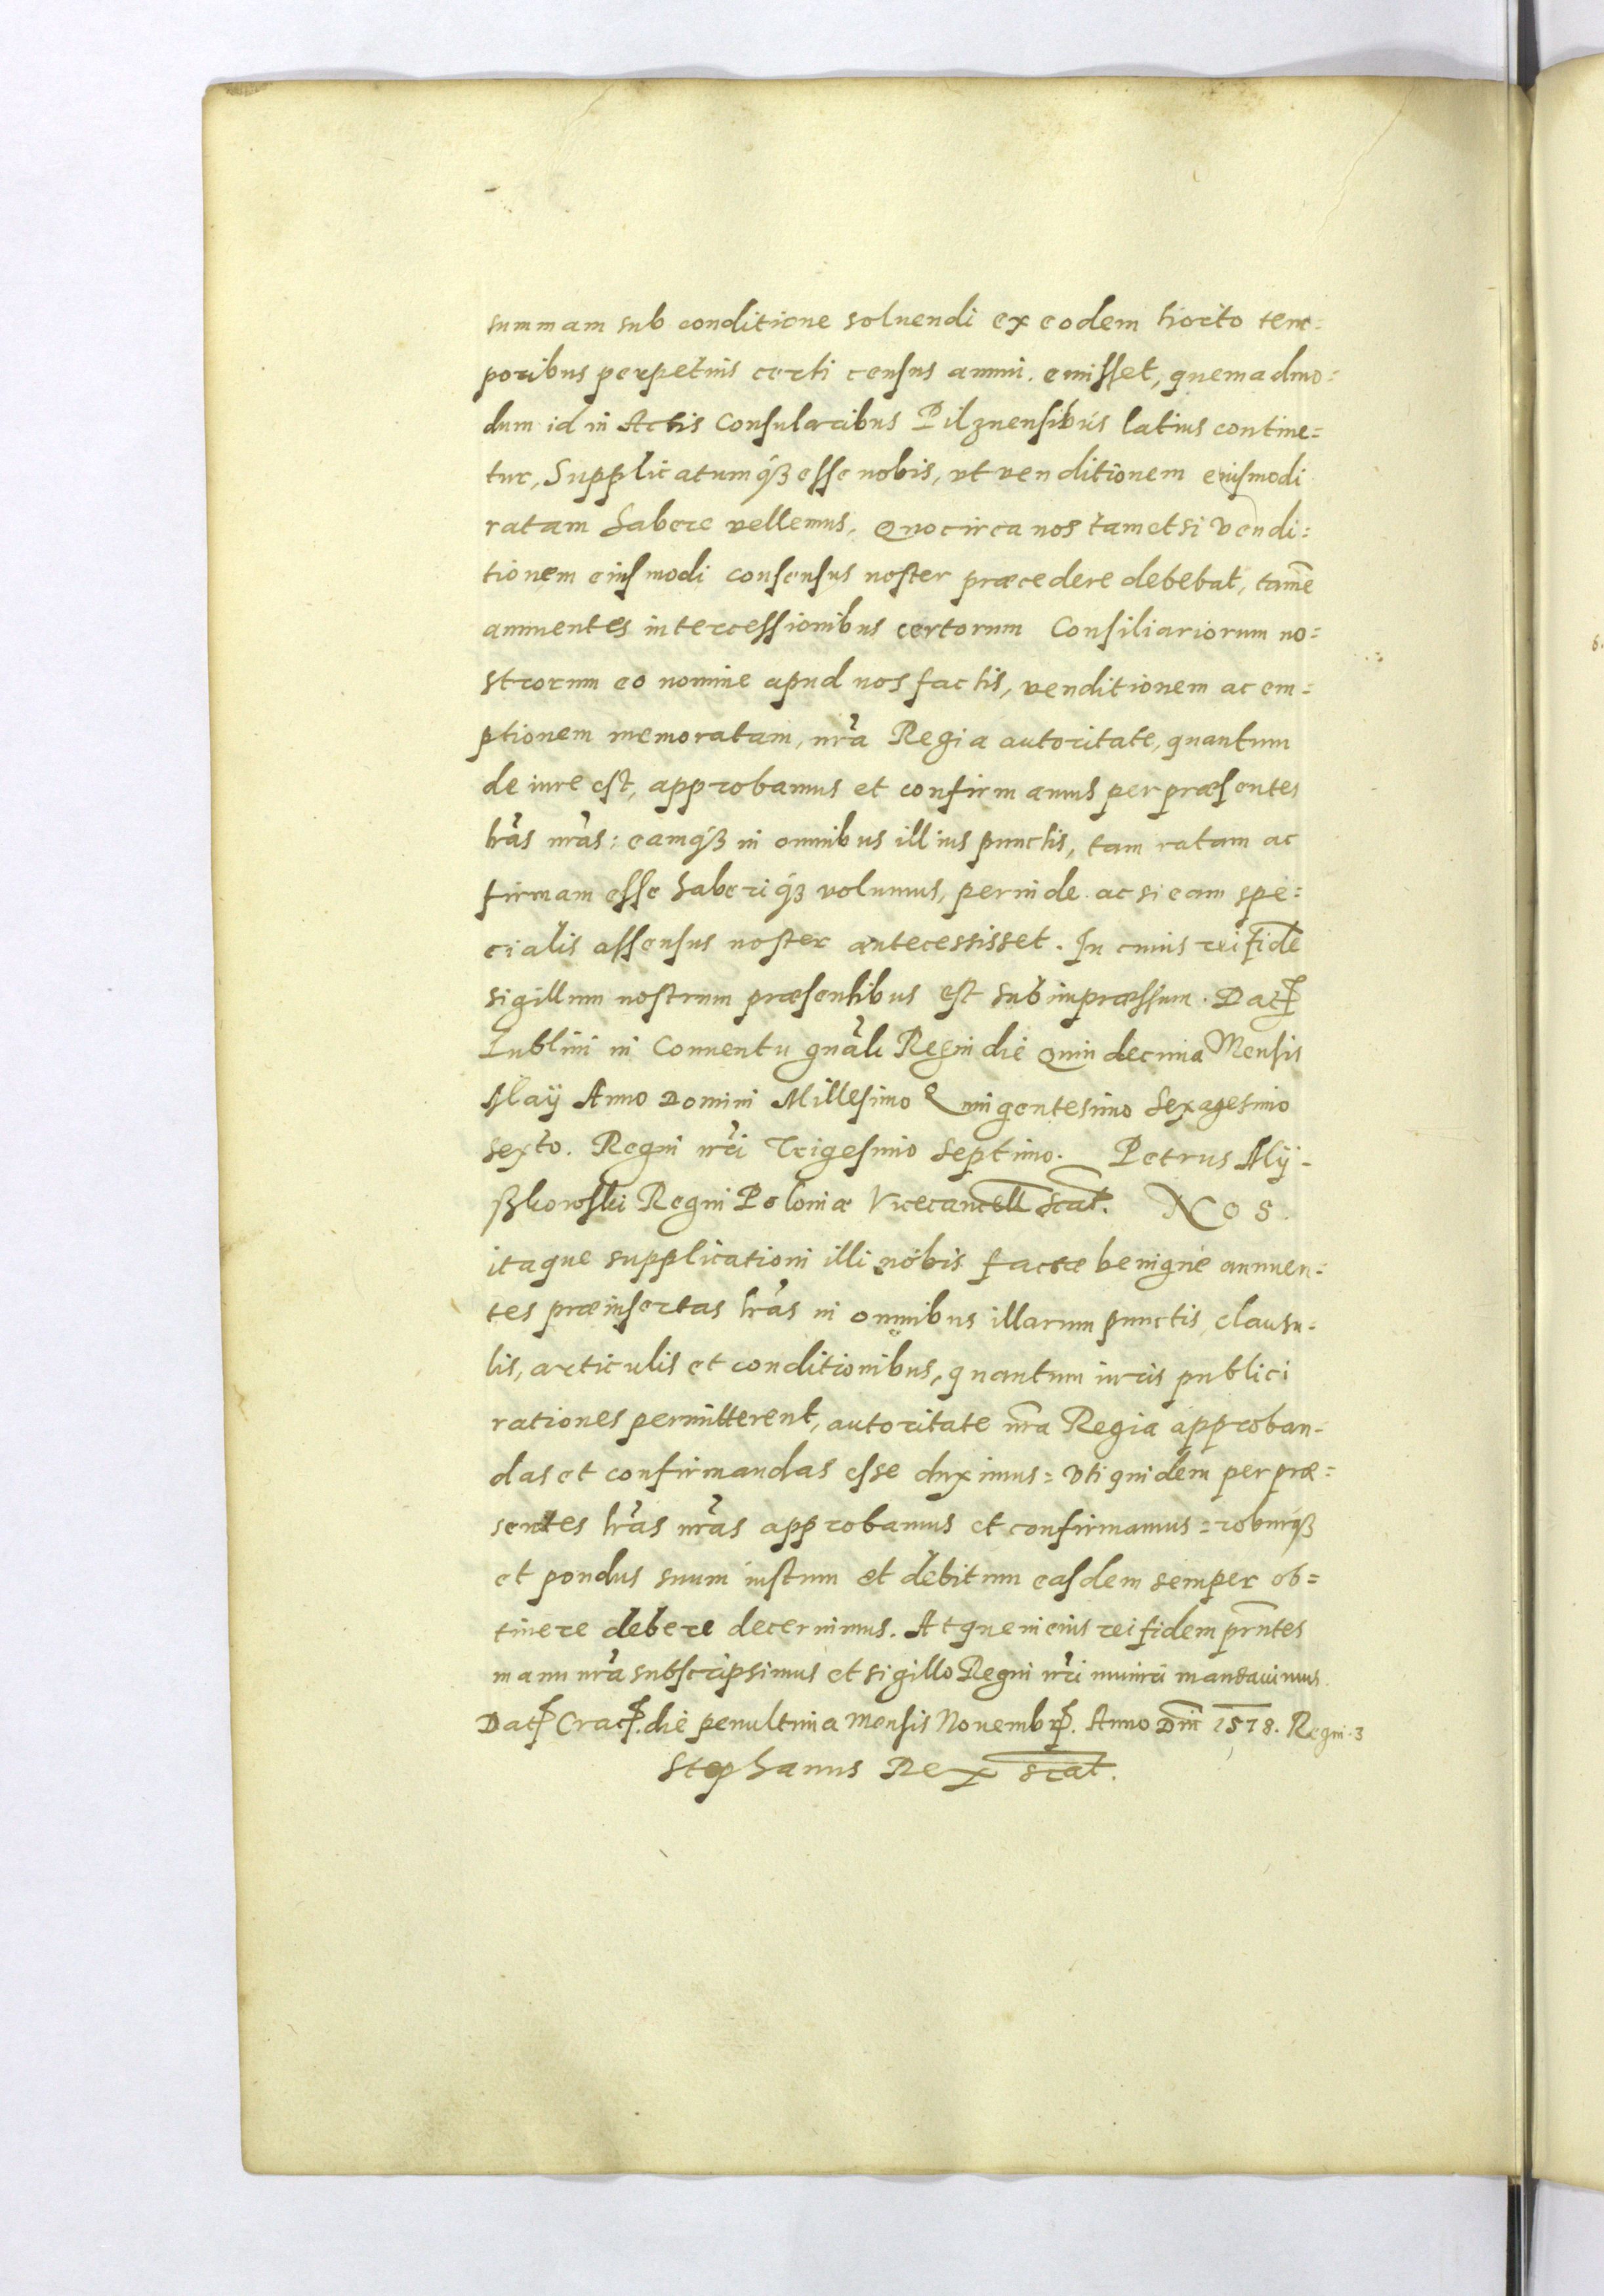 summam sub conditione soluendi ex eodem horto tem=
poribus perpetuis certi census annui. emisset, quemadmo=
dum id in Actis Consularibus Pilznensibus latius contine=
tur, Supplicatumqȝ esse nobis, vt venditionem eiusmodi
ratam habere vellemus, Quocirca nos tametsi vendi=
tionem eiusmodi consensus noster præcedere debebat, tamē
annuentes intercessionibus certorum Consiliariorum no=
strorum eo nomine apud nos factis, venditionem ac em=
ptionem memoratam, nr̃a Regia autoritate, quantum
de iure est, approbamus et confirmamus per præsentes
lr̃as nr̃as: eamqȝ in omnibus illius punctis, tam ratam ac
firmam esse haberiqȝ volumus, perinde ac si eam spe=
cialis assensus noster antecessisset. In cuius rei fidē
sigillum nostrum præsentibus est subimpræssum. Datꝭ
Lublini in Conuentu gn̄ali Regni die Quindecima Mensis
Maÿ Anno Domini Millesimo Quingentesimo Sexagesimo
sexto. Regni nr̃i Trigesimo Septimo. Petrus Mÿ-
ßkowski Regni Poloniæ Vicecancell̄ scat̄. NOS.
itaque supplicationi illi nobis factæ benigne annuen=
tes præinsertas lr̃as in omnibus illarum punctis, clausu=
lis, articulis et conditionibus, quantum iuris publici
rationes permitterent, autoritate nr̃a Regia approban-
das et confirmandas esse duximus= vti quidem per præ=
sentes lr̃as nr̃as approbamus et confirmamus= roburqȝ
et pondus suum iustum et debitum easdem semper ob=
tinere debere decernimus. Atque in eius rei fidem prn̄tes
manu nr̃a subscripsimus et sigillo Regni nr̃i muniri mandauimus
Datꝭ Cracꝭ. die penultima Mensis Nouembrꝭ. Anno Dn̄i 1578. Regni. 3
Stephanus Rex scat̄.